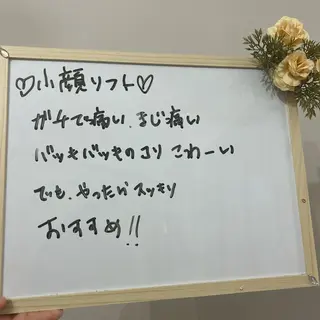 ♡小顔リフト♡
ガチで痛い、まじ痛い
バッキバッキのコリ こわーい
でも、やったらスッキリ
おすすめ!!